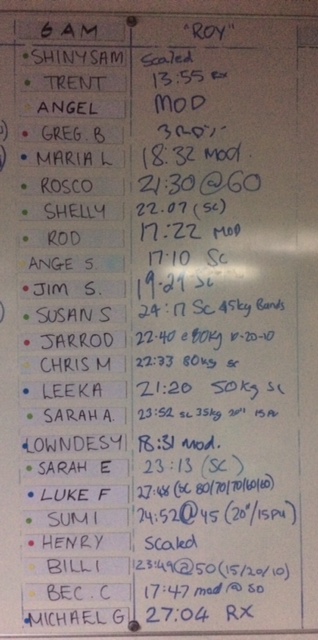 6 AM "ROY"
SHINYSAM Scaled
TRENT 13:55 Rx
ANGEL MOD
GREG. B 3
MARIA L 18:32 Mod.
ROSCO 21:30 @ 60
SHELLY 22.07 (SC)
ROD 17:22 MOD
ANGE S. 17:10 Sc
JIM S. 19:29 Sc
SUSAN S 24:17 Sc 45kg Bands
JARROD 22:40 @ 80kg 10-20-10
CHRIS M 22:33 80kg sc
LEEKA 21:20 50kg sc
SARAH A. 23:52 sc 35kg 20" 15 PU
LOWNDESY 18:31 mod.
SARAH E 23:13 (SC)
LUKE F 27:48 (SC 80/70/70/60/60)
SUMI 24:52 @ 45 (20"/15PU)
HENRY Scaled
BILLI 23:49 @ 50 (15/20/10)
BEC. C 17:47 mod @ 50
MICHAEL G 27:04 RX